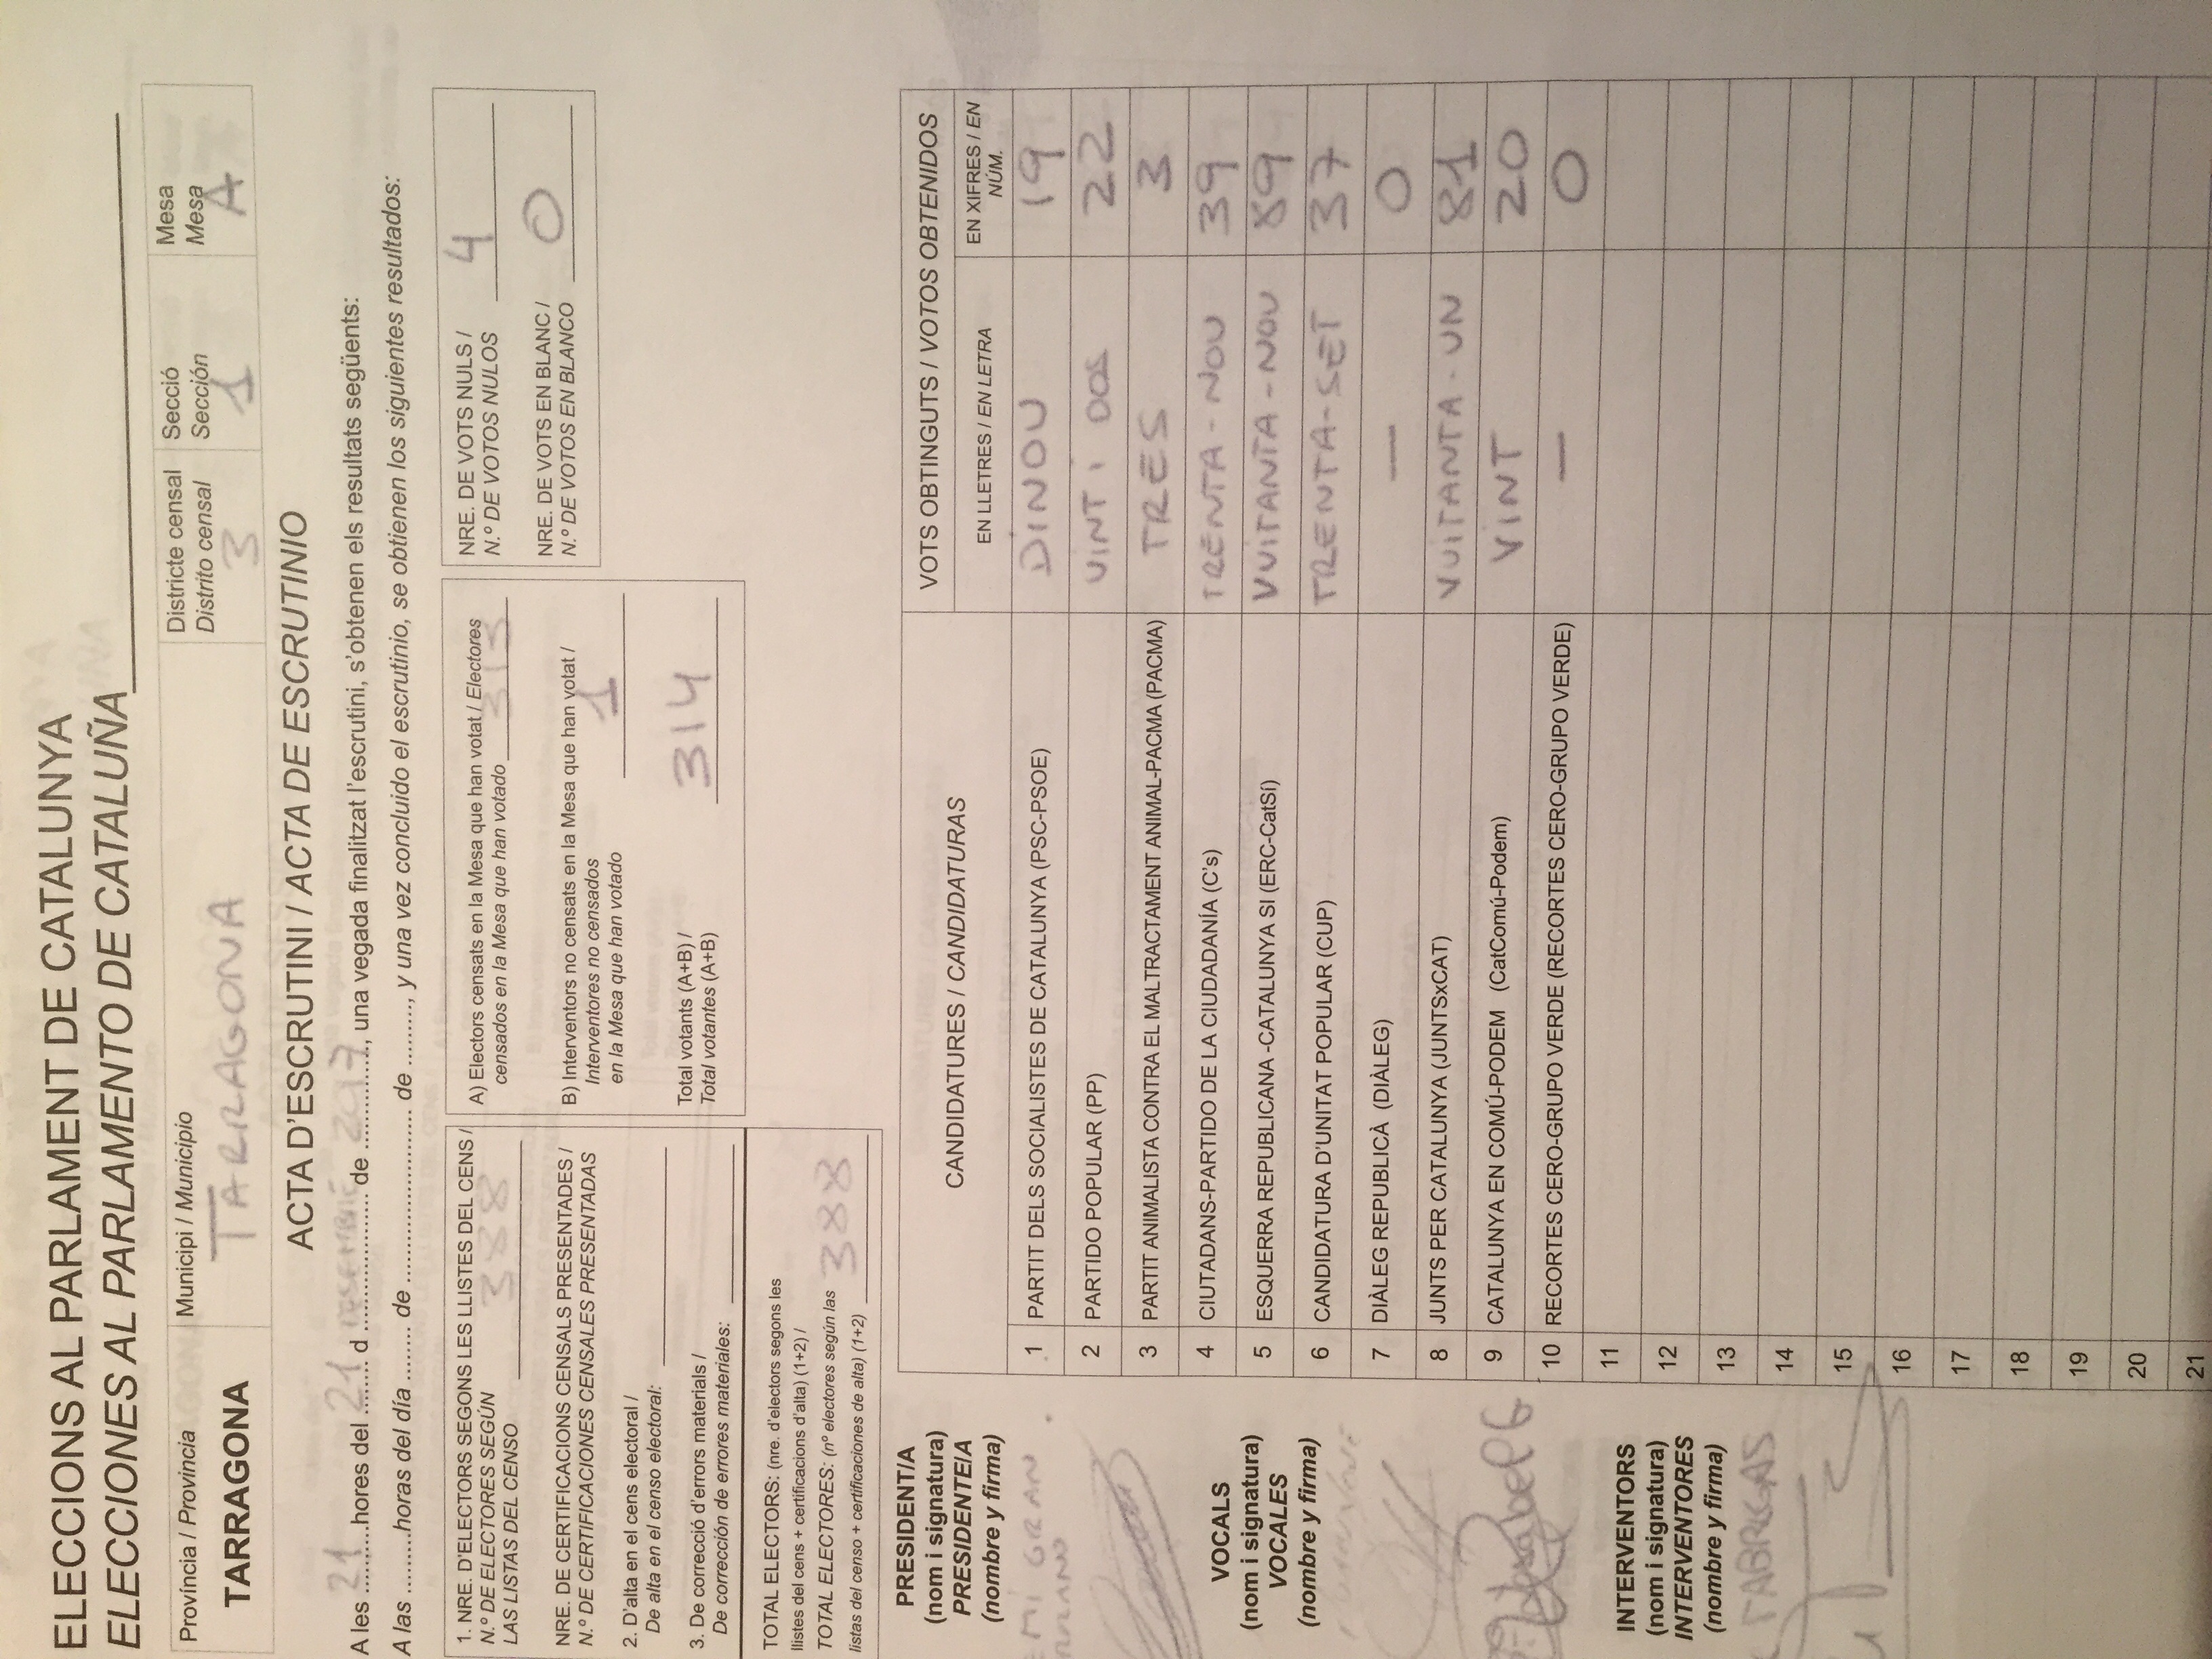 ELECCIONS AL PARLAMENT DE CATALUNYA
ELECCIONES AL PARLAMENTO DE CATALUÑA
Província / Provincia
TARRAGONA
Municipi / Municipio
TARRAGONA
Districte censal
Distrito censal
3
Secció
Sección
1
Mesa
Mesa
A
ACTA D'ESCRUTINI / ACTA DE ESCRUTINIO
A les 21 hores del 21 d DESEMBRE de 2017, una vegada finalitzat l'escrutini, s'obtenen els resultats següents:
A las .........horas del día ........ de .......................... de ........., y una vez concluido el escrutinio, se obtienen los siguientes resultados:
1. NRE. D'ELECTORS SEGONS LES LLISTES DEL CENS /
N.º DE ELECTORES SEGÚN
LAS LISTAS DEL CENSO 388
NRE. DE CERTIFICACIONS CENSALS PRESENTADES /
N.º DE CERTIFICACIONES CENSALES PRESENTADAS
2. D'alta en el cens electoral /
De alta en el censo electoral:
3. De correcció d'errors materials /
De corrección de errores materiales:
TOTAL ELECTORS: (nre. d'electors segons les
llistes del cens + certificacions d'alta) (1+2) /
TOTAL ELECTORES: (nº electores según las
listas del censo + certificaciones de alta) (1+2) 388
A) Electors censats en la Mesa que han votat / Electores
censados en la Mesa que han votado 313
B) Interventors no censats en la Mesa que han votat /
Interventores no censados
en la Mesa que han votado 1
Total votants (A+B) /
Total votantes (A+B) 314
NRE. DE VOTS NULS /
N.º DE VOTOS NULOS 4
NRE. DE VOTS EN BLANC /
N.º DE VOTOS EN BLANCO 0
PRESIDENT/A
(nom i signatura)
PRESIDENTE/A
(nombre y firma)
GRAN
VOCALS
(nom i signatura)
VOCALES
(nombre y firma)
INTERVENTORS
(nom i signatura)
INTERVENTORES
(nombre y firma)
FABREGAS
CANDIDATURES / CANDIDATURAS
VOTS OBTINGUTS / VOTOS OBTENIDOS
EN LLETRES / EN LETRA
EN XIFRES / EN
NÚM.
1 PARTIT DELS SOCIALISTES DE CATALUNYA (PSC-PSOE) DINOU 19
2 PARTIDO POPULAR (PP) VINT I DOS 22
3 PARTIT ANIMALISTA CONTRA EL MALTRACTAMENT ANIMAL-PACMA (PACMA) TRES 3
4 CIUTADANS-PARTIDO DE LA CIUDADANÍA (C's) TRENTA-NOU 39
5 ESQUERRA REPUBLICANA -CATALUNYA SI (ERC-CatSí) VUITANTA-NOU 89
6 CANDIDATURA D'UNITAT POPULAR (CUP) TRENTA-SET 37
7 DIÀLEG REPUBLICÀ (DIÀLEG) — 0
8 JUNTS PER CATALUNYA (JUNTSxCAT) VUITANTA-UN 81
9 CATALUNYA EN COMÚ-PODEM (CatComú-Podem) VINT 20
10 RECORTES CERO-GRUPO VERDE (RECORTES CERO-GRUPO VERDE) — 0
11
12
13
14
15
16
17
18
19
20
21